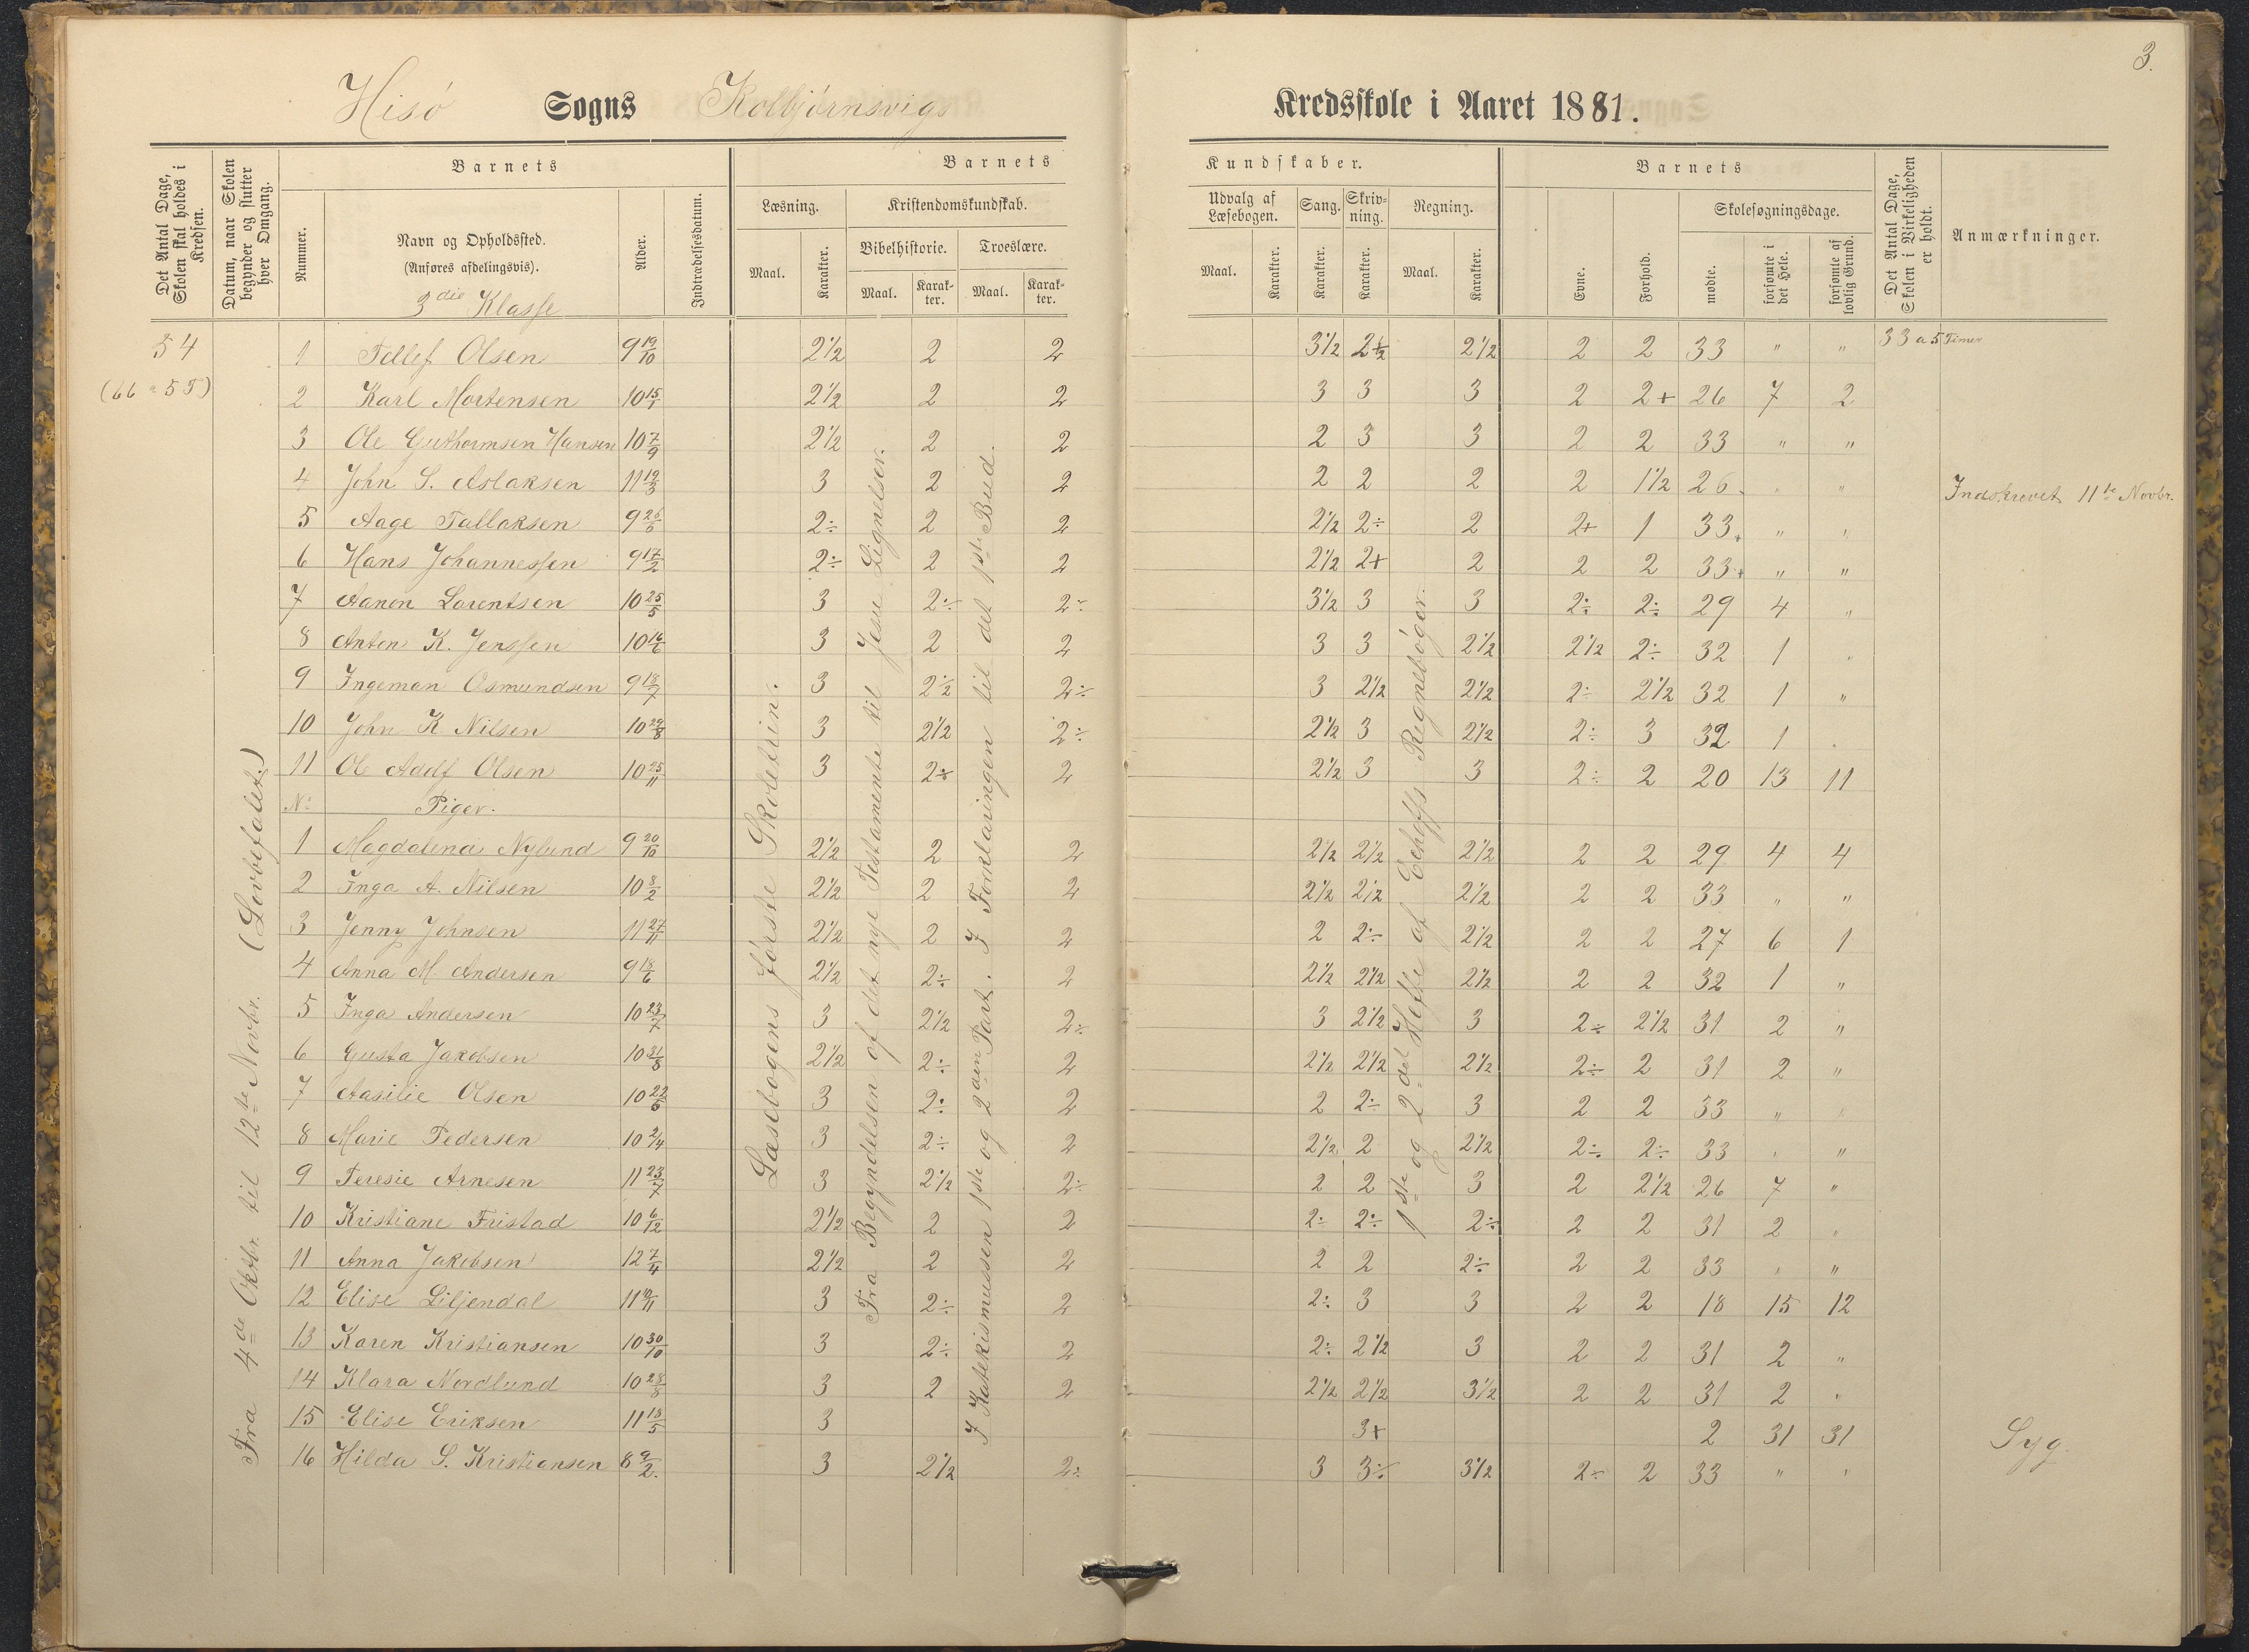 3.
Hisö Sogns Kolbjørnsvigs Kredsskole i Aaret 1881.
Det Antal Dage, Skolen skal holdes i Kredsen.
Datum, naar Skolen begynder og slutter hver Omgang.
Barnets
Nummer.
Navn og Opholdssted.
(Anføres afdelingsvis).
3die Klasse
Alder.
Indtrædelsesdatum.
Barnets Kundskaber.
Læsning.
Maal. Karakter.
Kristendomskundskab.
Bibelhistorie. Troeslære.
Maal. Karakter. Maal. Karakter.
Udvalg af Læsebogen.
Maal. Karakter.
Sang. Karakter.
Skrivning. Karakter.
Regning.
Maal. Karakter.
Barnets
Evne. Forhold.
Skolesøgningsdage.
mødte. forsømte i det Hele. forsømte af lovlig Grund.
Det Antal Dage, Skolen i Virkeligheden er holdt.
Anmærkninger.
54
(66 a 5 T)
Fra 4de Oktbr. til 12te Novbr. (Lovbefalet.)
Læsebogens første Skoletrin.
Fra Begyndelsen af det nye Testamente til Jesu Lignelser.
I Katekismussen 1ste og 2den Part. I Forklaringen til det 1ste Bud.
1ste og 2det Hefte af Echoffs Regnebøger.
1 Tellef Olsen 9 19/10 2 1/2 2 2 3 1/2 2 1/2 2 1/2 2 2 33 " " 33 a 5 Timer
2 Karl Mortensen 10 15/1 2 1/2 2 2 3 3 3 2 2+ 26 7 2
3 Ole Guthormsen Hansen 10 7/9 2 1/2 2 2 2 3 3 2 2 33 " "
4 John S. Aslaksen 11 19/3 3 2 2 2 2 2 2 1 1/2 26 " " Indskrevet 11te Novbr.
5 Aage Tallaksen 9 26/6 2÷ 2 2 2 1/2 2÷ 2 2+ 1 33 " "
6 Hans Johannessen 9 17/2 2÷ 2 2 2 1/2 2+ 2 2 2 33 " "
7 Aanon Larentsen 10 25/5 3 2÷ 2÷ 3 1/2 3 3 2÷ 2÷ 29 4 "
8 Anton K. Jenssen 10 16/6 3 2 2 3 3 2 1/2 2 1/2 2÷ 32 1 "
9 Ingeman Osmundsen 9 18/7 3 2 1/2 2÷ 3 2 1/2 2 1/2 2÷ 2 1/2 32 1 "
10 John K Nilsen 10 29/8 3 2 1/2 2÷ 2 1/2 3 2 1/2 2÷ 3 32 1 "
11 Ole Adolf Olsen 10 25/11 3 2÷ 2 2 1/2 3 3 2÷ 2 20 13 11
No Piger.
1 Magdalena Nylund 9 20/10 2 1/2 2 2 2 1/2 2 1/2 2 1/2 2 2 29 4 4
2 Inga A. Nilsen 10 8/2 2 1/2 2 2 2 1/2 2 1/2 2 1/2 2 2 33 " "
3 Jenny Johnsen 11 27/11 2 1/2 2 2 2 2÷ 2 1/2 2 2 27 6 1
4 Anna M. Andersen 9 18/6 2 1/2 2÷ 2 2 1/2 2 1/2 2 1/2 2 2 32 1 "
5 Inga Andersen 10 23/7 3 2 1/2 2÷ 3 2 1/2 3 2÷ 2 1/2 31 2 "
6 Gusta Jakobsen 10 31/8 2 1/2 2÷ 2 2 1/2 2 1/2 2 1/2 2÷ 2 31 2 "
7 Aasilie Olsen 10 22/6 3 2÷ 2 2 2÷ 3 2 2 33 " "
8 Marie Pedersen 10 2/4 3 2÷ 2 2 1/2 2 2 1/2 2÷ 2÷ 33 " "
9 Teresie Arnesen 11 23/7 3 2 1/2 2÷ 2 2 3 2 2 1/2 26 7 "
10 Kristiane Fristad 10 6/12 2 1/2 2 2 2÷ 2÷ 2÷ 2 2 31 2 "
11 Anna Jakobsen 12 7/4 2 1/2 2 2 2 2 2÷ 2 2 33 " "
12 Elise Liljendal 11 9/11 3 2÷ 2 2÷ 3 3 2 2 18 15 12
13 Karen Kristiansen 10 30/10 3 2÷ 2 2÷ 2 1/2 3 2 2 31 2 "
14 Klara Nordlund 10 28/8 3 2 2 2 1/2 2 1/2 3 1/2 2 2 31 2 "
15 Elise Eriksen 11 18/5 3 3+ 2 31 31 Syg.
16 Hilda S. Kristiansen 8 9/2. 3 2 1/2 2÷ 3 3÷ 3 1/2 2÷ 2 33 " "